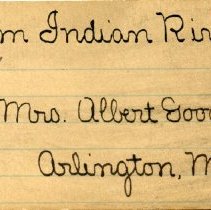 m Indian Rir
Mrs. Albert Good
Arlington, M